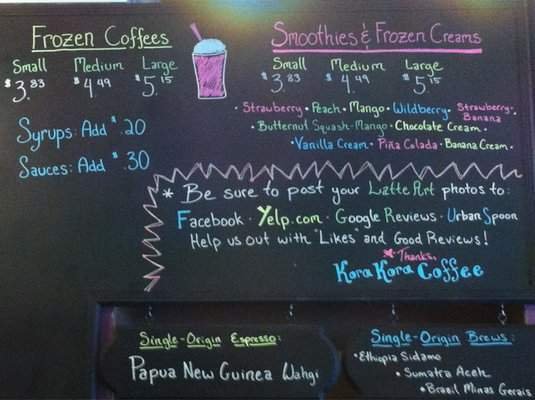 Frozen Coffees
Small Medium Large
$3.83 $4.49 $5.15
Syrups: Add $.20
Sauces: Add $.30
Smoothies & Frozen Creams
Small Medium Large
$3.83 $4.49 $5.15
• Strawberry • Peach • Mango • Wildberry • Strawberry-Banana
• Butternut Squash-Mango • Chocolate Cream •
• Vanilla Cream • Piña Colada • Banana Cream •
* Be sure to post your Latte Art photos to:
Facebook • Yelp.com • Google Reviews • Urban Spoon
Help us out with "Likes" and Good Reviews!
Thanks,
Kora Kora Coffee
Single-Origin Espresso:
Papua New Guinea Wahgi
Single-Origin Brews:
• Ethiopia Sidamo
• Sumatra Aceh
• Brasil Minas Gerais